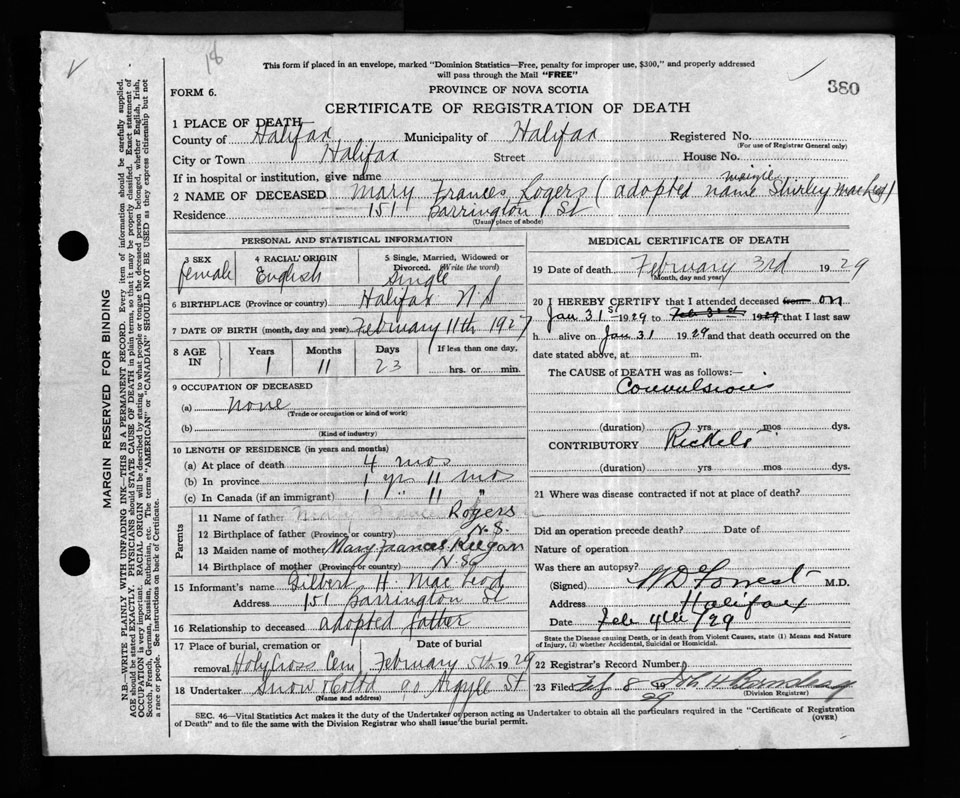 18
This form if placed in an envelope, marked "Dominion Statistics—Free, penalty for improper use, $300," and properly addressed
will pass through the Mail "FREE"
FORM 6.
PROVINCE OF NOVA SCOTIA
380
CERTIFICATE OF REGISTRATION OF DEATH
1 PLACE OF DEATH
County of Halifax Municipality of Halifax Registered No.
(For use of Registrar General only)
City or Town Halifax Street House No.
If in hospital or institution, give name
2 NAME OF DECEASED Mary Frances Rogers (adopted name Shirley
Residence 151 Barrington St
(Usual place of abode)
PERSONAL AND STATISTICAL INFORMATION
3 SEX 4 RACIAL ORIGIN 5 Single, Married, Widowed or Divorced. (Write the word)
female English Single
6 BIRTHPLACE (Province or country) Halifax N.S
7 DATE OF BIRTH (month, day and year) February 11th 1927
8 AGE IN Years Months Days If less than one day,
1 11 23 hrs. or min.
9 OCCUPATION OF DECEASED
(a) none
(Trade or occupation or kind of work)
(b)
(Kind of industry)
10 LENGTH OF RESIDENCE (in years and months)
(a) At place of death 4 mos
(b) In province 1 yr 11 mo
(c) In Canada (if an immigrant) 1 " 11 "
Parents
11 Name of father Rogers
12 Birthplace of father (Province or country) N.S.
13 Maiden name of mother Mary Frances Keegan
14 Birthplace of mother (Province or country) N.S
15 Informant's name Gilbert H. MacLeod
Address 151 Barrington St
16 Relationship to deceased adopted father
17 Place of burial, cremation or removal Holy Cross Cem
Date of burial February 5th 1929
18 Undertaker Snow & Co Ltd 90 Argyle St
(Name and address)
MEDICAL CERTIFICATE OF DEATH
19 Date of death February 3rd 1929
(Month, day and year)
20 I HEREBY CERTIFY that I attended deceased from on
Jan 31st 1929 to Feb 3rd 1929 that I last saw
h alive on Jan 31 1929 and that death occurred on the
date stated above, at m.
The CAUSE of DEATH was as follows:—
Convulsions
(duration) yrs mos dys.
CONTRIBUTORY Rickets
(duration) yrs mos dys.
21 Where was disease contracted if not at place of death?
Did an operation precede death? Date of
Nature of operation
Was there an autopsy?
(Signed) W D Forrest M.D.
Address Halifax
Date Feb 4th /29
State the Disease causing Death, or in death from Violent Causes, state (1) Means and Nature
of Injury, (2) whether Accidental, Suicidal or Homicidal.
22 Registrar's Record Number
23 Filed 8 29
(Division Registrar)
SEC. 46—Vital Statistics Act makes it the duty of the Undertaker or person acting as Undertaker to obtain all the particulars required in the "Certificate of Registration
of Death" and to file the same with the Division Registrar who shall issue the burial permit.
(OVER)
MARGIN RESERVED FOR BINDING
N.B.—WRITE PLAINLY WITH UNFADING INK—THIS IS A PERMANENT RECORD. Every item of information should be carefully supplied.
AGE should be stated EXACTLY. PHYSICIANS should STATE CAUSE OF DEATH in plain terms, so that it may be properly classified. Exact statement of
OCCUPATION is very important. RACIAL ORIGIN will be described by stating to what people or tongue the deceased person belonged, whether English, Irish,
Scotch, French, German, Russian, Ruthenian, etc. The terms "AMERICAN" or "CANADIAN" SHOULD NOT BE USED as they express citizenship but not
a race or people. See instructions on back of Certificate.